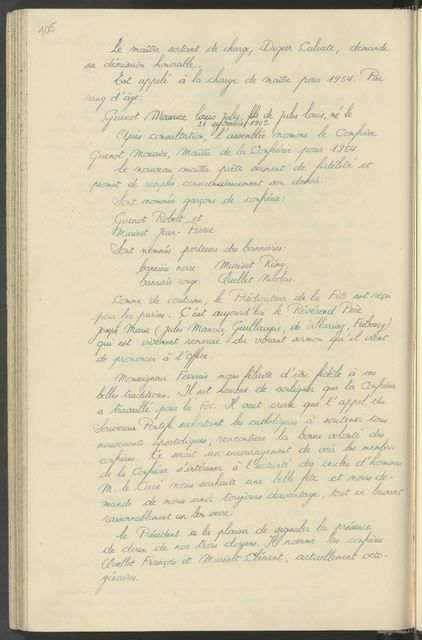 105
Le maître sortant de charge, Digier Calixte, demande
sa démission honorable.
Est appelé à la charge de maître pour 1954. Par
rang d'âge:
Guenot Maurice Louis July, fils de Jules Louis, né le
21 septembre 1905.
Après consultation, l'assemblée nomme le Confrère
Guenot Maurice, Maître de la Confrérie pour 1954.
Le nouveau maître prête serment de fidélité et
promet de remplir consciencieusement son devoir.
Sont nommés garçons de confrérie:
Guenot Robert et
Muriset Jean-Pierre.
Sont nommés porteurs des bannières:
bannière noire: Muriset Rémy.
bannière rouge: Quellet Nicolas.
Comme de coutume, le Prédicateur de la Fête est reçu
par les prières. C'est aujourd'hui le Révérend Père
Joseph Marie (Jules Maurice Guillaume, de Villariaz, Fribourg)
qui est vivement remercié du vibrant sermon qu'il vient
de prononcer à l'Office.
Monseigneur Ferraris nous félicite d'être fidèle à ces
belles traditions. Il est heureux de souligner que la Confrérie
a travaillé pour la Foi. Il veut croire que l'appel du
Souverain Pontife exhortant les catholiques à soutenir tous
mouvements apostoliques, rencontrera la bonne volonté des
confrères. Ce serait un encouragement de voir les membres
de la Confrérie s'intéresser à l'activité des cercles d'hommes
M. le Curé nous souhaite une belle fête et nous de-
mande de nous unir toujours davantage, tout en buvant
raisonnablement un bon verre.
Le Président a le plaisir de signaler la présence
de deux de nos trois doyens. Il nomme les confrères
Quellet François et Muriset Clément, actuellement octo-
génaires.